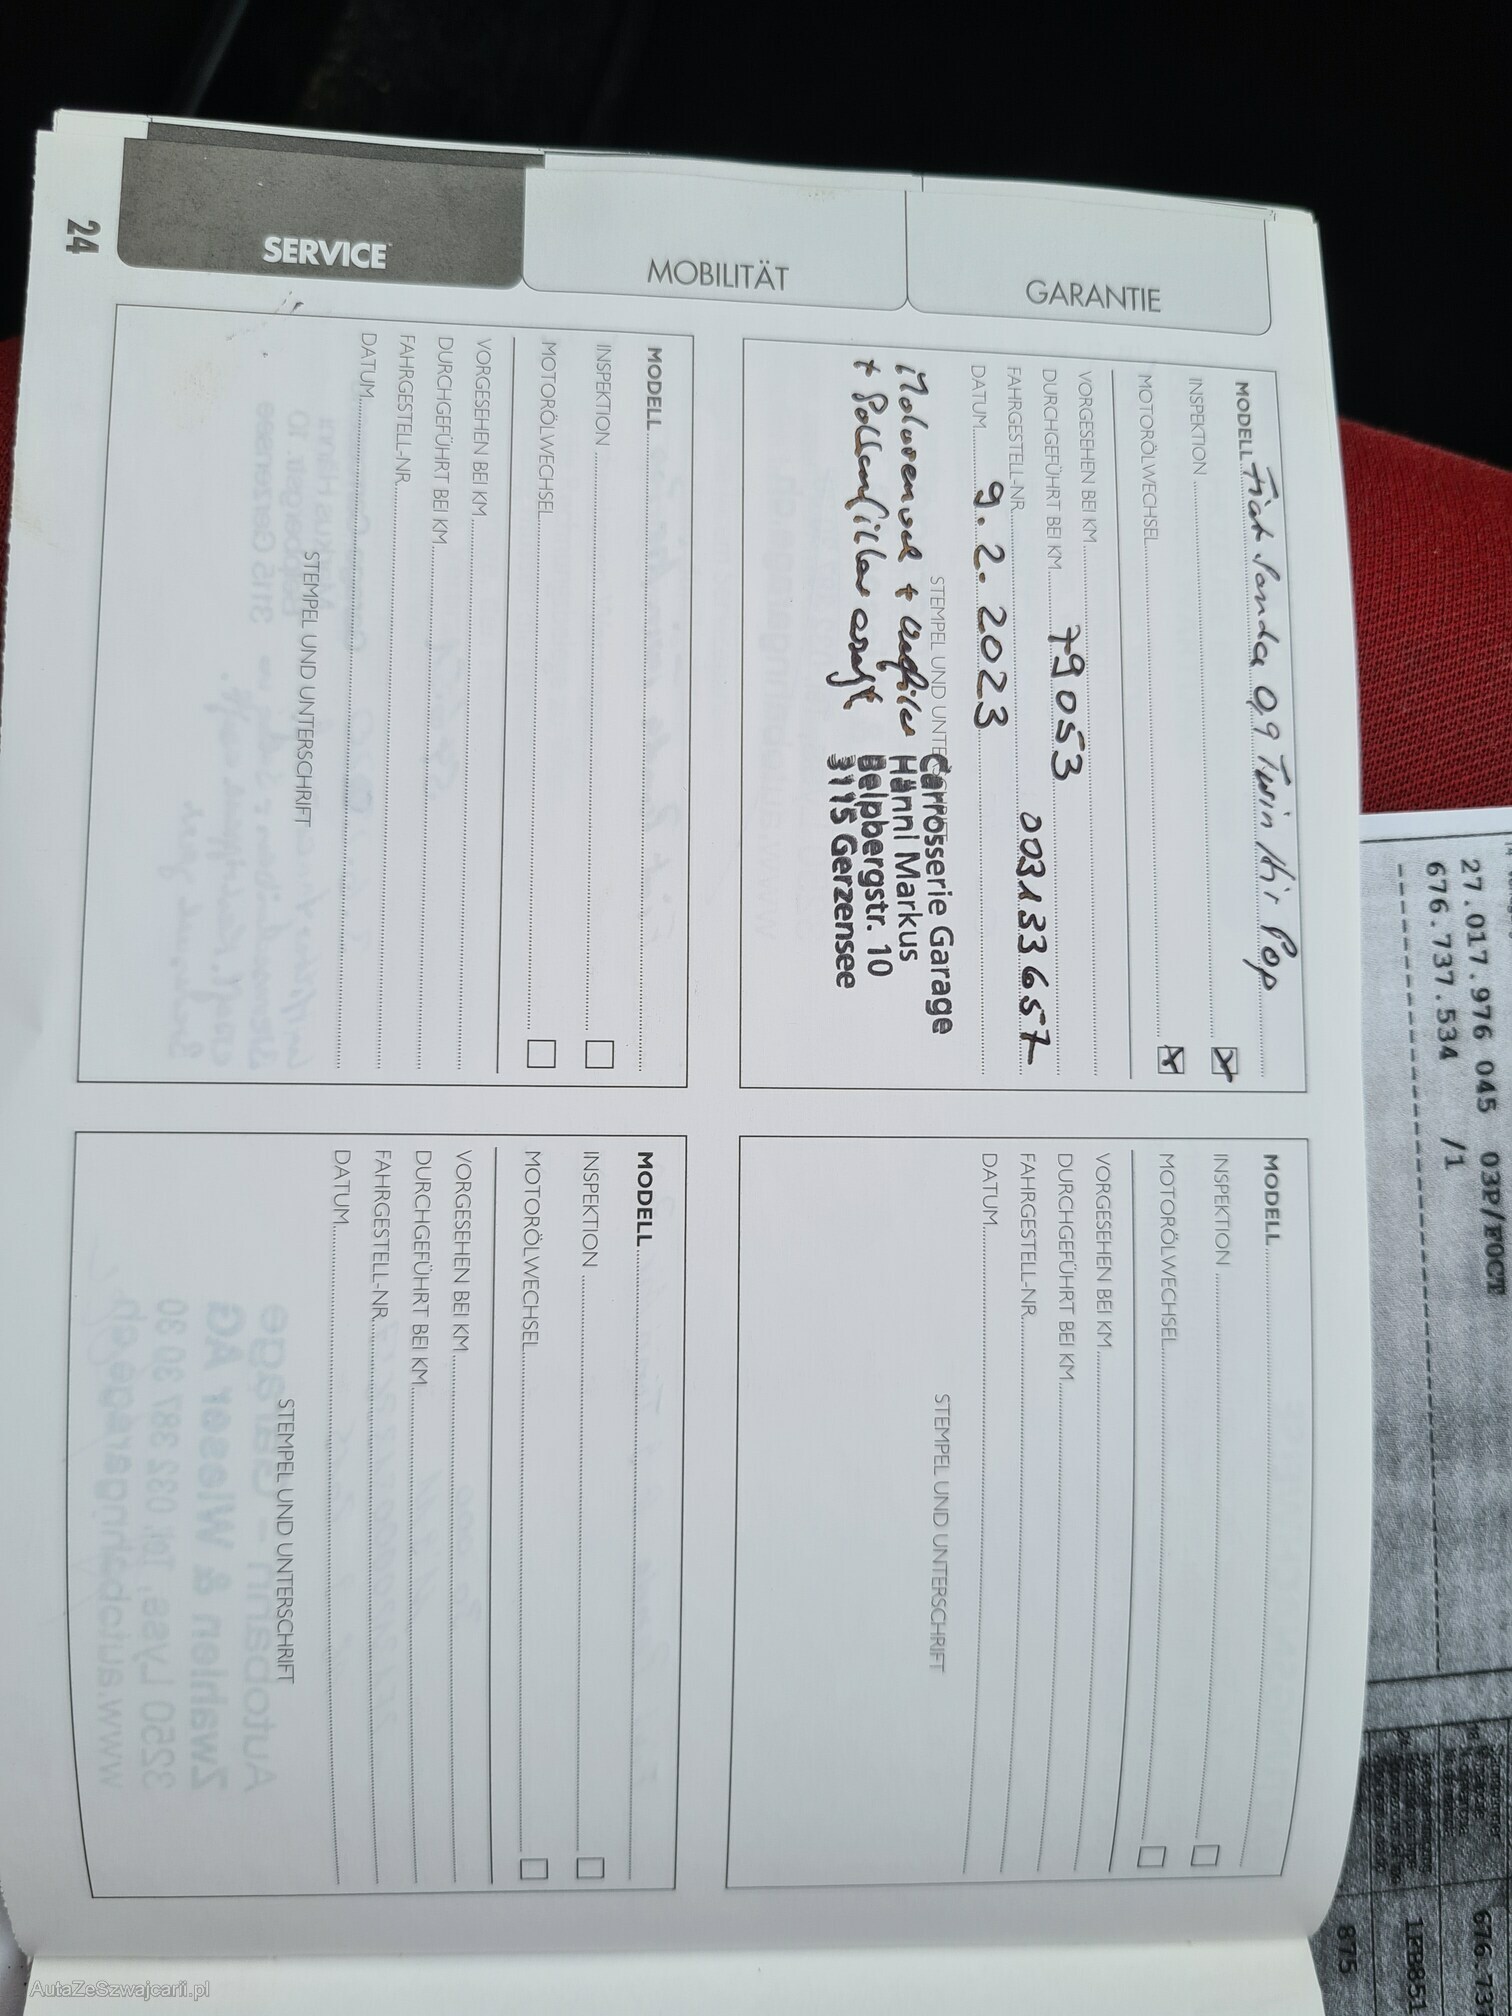 24
SERVICE
MOBILITÄT
GARANTIE
MODELL Fiat Panda 0,9 Twin Air Pop
INSPEKTION
MOTORÖLWECHSEL
VORGESEHEN BEI KM
DURCHGEFÜHRT BEI KM 79053
FAHRGESTELL-NR. 003133657
DATUM 9.2.2023
STEMPEL UND UNTERSCHRIFT
+ Pollenfilter
Carrosserie Garage
Hänni Markus
Belpbergstr. 10
3115 Gerzensee
MODELL
INSPEKTION
MOTORÖLWECHSEL
VORGESEHEN BEI KM
DURCHGEFÜHRT BEI KM
FAHRGESTELL-NR.
DATUM
STEMPEL UND UNTERSCHRIFT
MODELL
INSPEKTION
MOTORÖLWECHSEL
VORGESEHEN BEI KM
DURCHGEFÜHRT BEI KM
FAHRGESTELL-NR.
DATUM
STEMPEL UND UNTERSCHRIFT
MODELL
INSPEKTION
MOTORÖLWECHSEL
VORGESEHEN BEI KM
DURCHGEFÜHRT BEI KM
FAHRGESTELL-NR.
DATUM
STEMPEL UND UNTERSCHRIFT
27.017.976 045 03P/F0CT
676.737.534 /1
676.73
1EB85
875
AutaZeSzwajcarii.pl